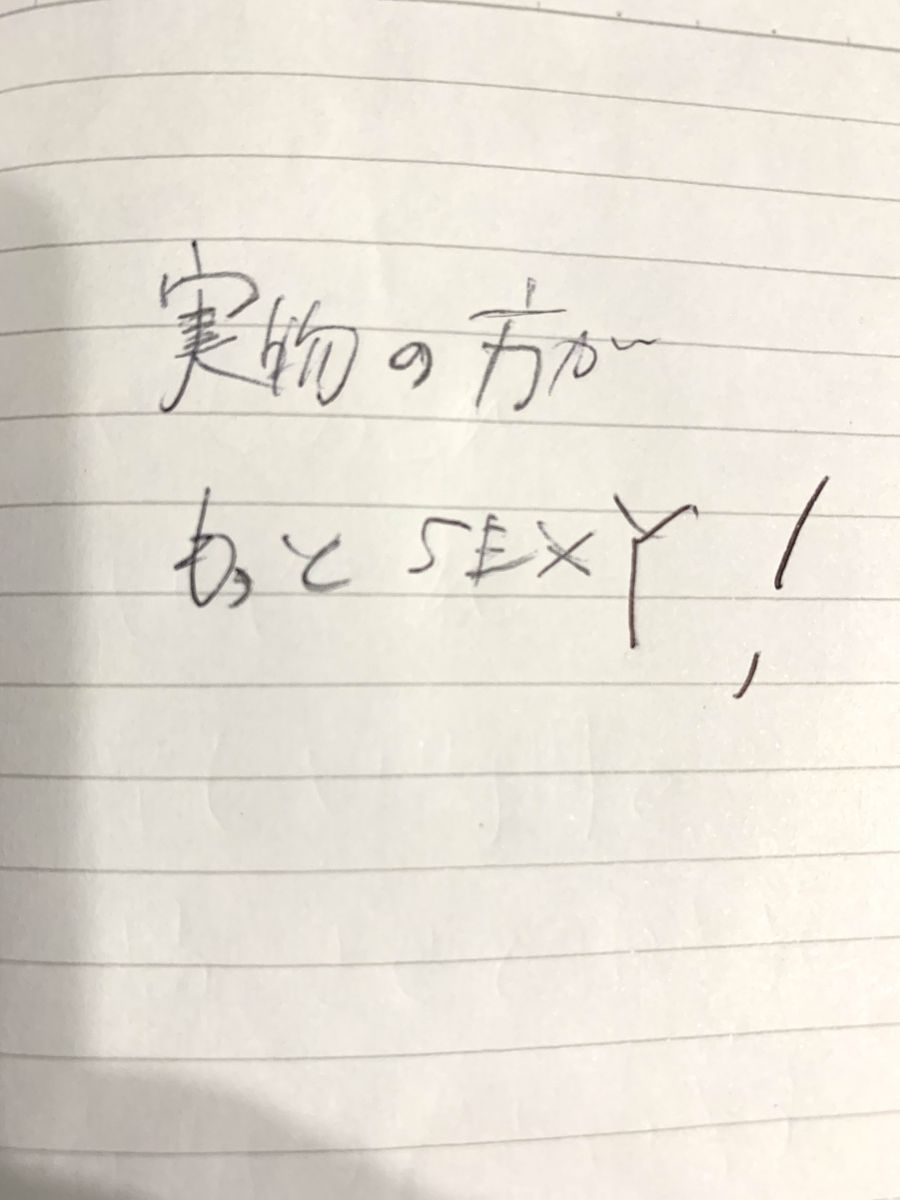 実物の方が
もっとSEXY!